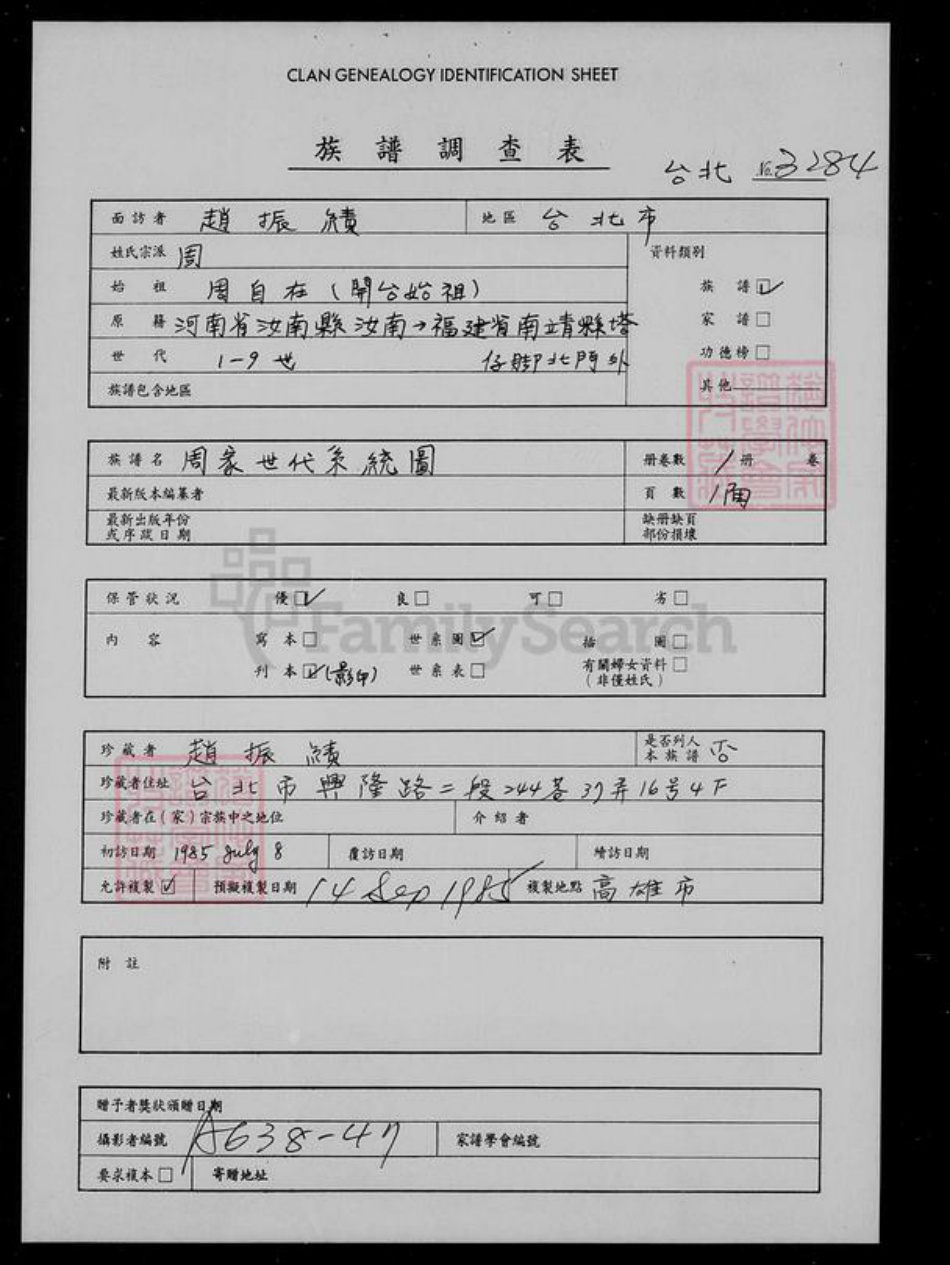 CLAN GENEALOGY IDENTIFICATION SHEET
族譜調查表
台北 No. 3284
面訪者 趙振績 地區 台北市
姓氏宗派 周 資料類別
始祖 周自在(開台始祖) 族譜☑
原籍 河南省汝南縣汝南→福建省南靖縣塔 家譜□
世代 1-9世 仔腳北門外 功德榜□
族譜包含地區 其他
族譜名 周家世代系統圖 册卷數 1册 卷
最新版本編纂者 頁數 1面
最新出版年份 缺册缺頁
或序跋日期 部份損壞
保管狀況 優☑ 良□ 可□ 劣□
內容 寫本□ 世系圖☑ 插圖□
刊本☑(影印) 世系表□ 有關婦女資料□
(非僅姓氏)
FamilySearch
珍藏者 趙振績 是否列入
本族譜 否
珍藏者住址 台北市興隆路二段244巷37弄16号4F
珍藏者在(家)宗族中之地位 介紹者
初訪日期 1985 July 8 覆訪日期 續訪日期
允許複製☑ 預擬複製日期 14 Sep 1985 複製地點 高雄市
附註
贈予者獎狀頒贈日期
攝影者編號 A638-47 家譜學會編號
要求複本□ 寄贈地址